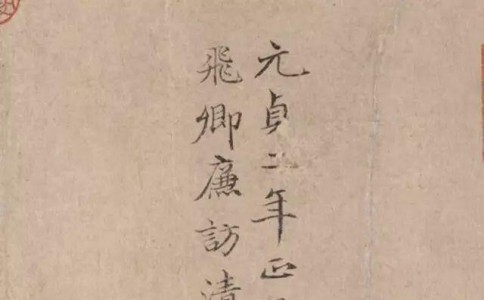 元貞二年正
飛卿廉訪清